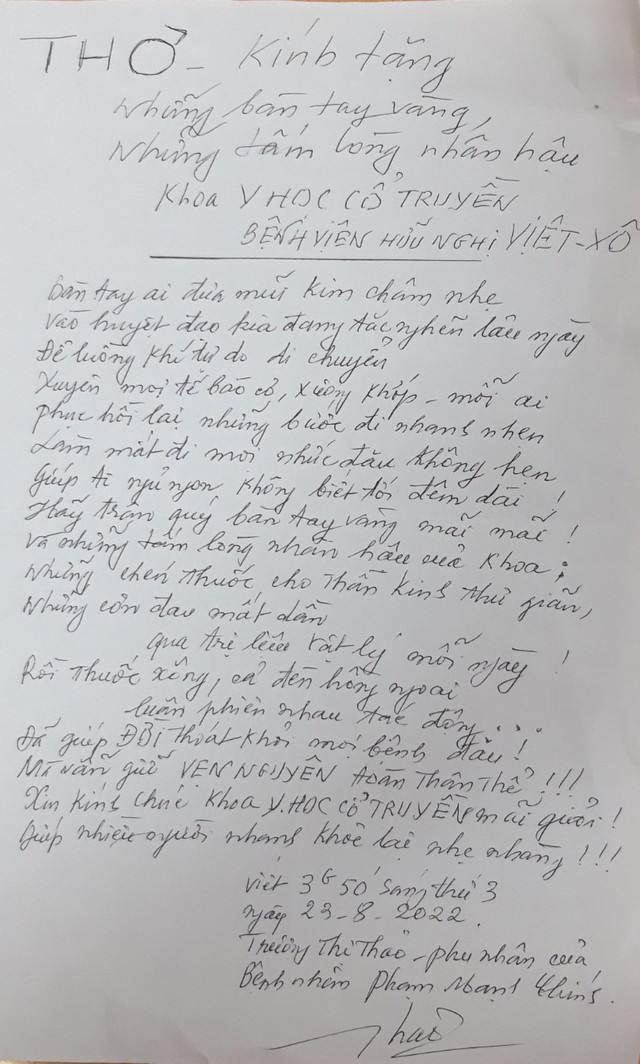 THƠ - Kính tặng
Những bàn tay vàng,
Những tấm lòng nhân hậu
Khoa Y HỌC CỔ TRUYỀN
BỆNH VIỆN HỮU NGHỊ VIỆT-XÔ
Bàn tay ai đưa mũi kim châm nhẹ
Vào huyệt đạo kia đang tắc nghẽn lâu ngày
Để luồng khí tự do di chuyển
Xuyên mọi tế bào cơ, xương khớp - mỗi ai
Phục hồi lại những bước đi nhanh nhẹn
Làm mất đi mọi nhức đau không hẹn
Giúp ai ngủ ngon không biết tới đêm dài !
Hãy trân quý bàn tay vàng mãi mãi !
Và những tấm lòng nhân hậu của Khoa :
Những chén thuốc cho Thần Kinh thư giãn,
Những cơn đau mất dần
qua trị liệu vật lý mỗi ngày !
Rồi thuốc xông, cả đèn hồng ngoại
luân phiên nhau tác động ...
Đã giúp ĐỜI thoát khỏi mọi bệnh đau !
Mà vẫn giữ VẸN NGUYÊN toàn thân thể !!!
Xin kính chúc Khoa Y. HỌC CỔ TRUYỀN mãi giỏi !
Giúp nhiều người nhanh khỏe lại nhẹ nhàng !!!
Viết 3G50 sáng thứ 3
ngày 23-8-2022.
Trương Thị Thảo - phu nhân của
Bệnh nhân Phạm Mạnh
Thao